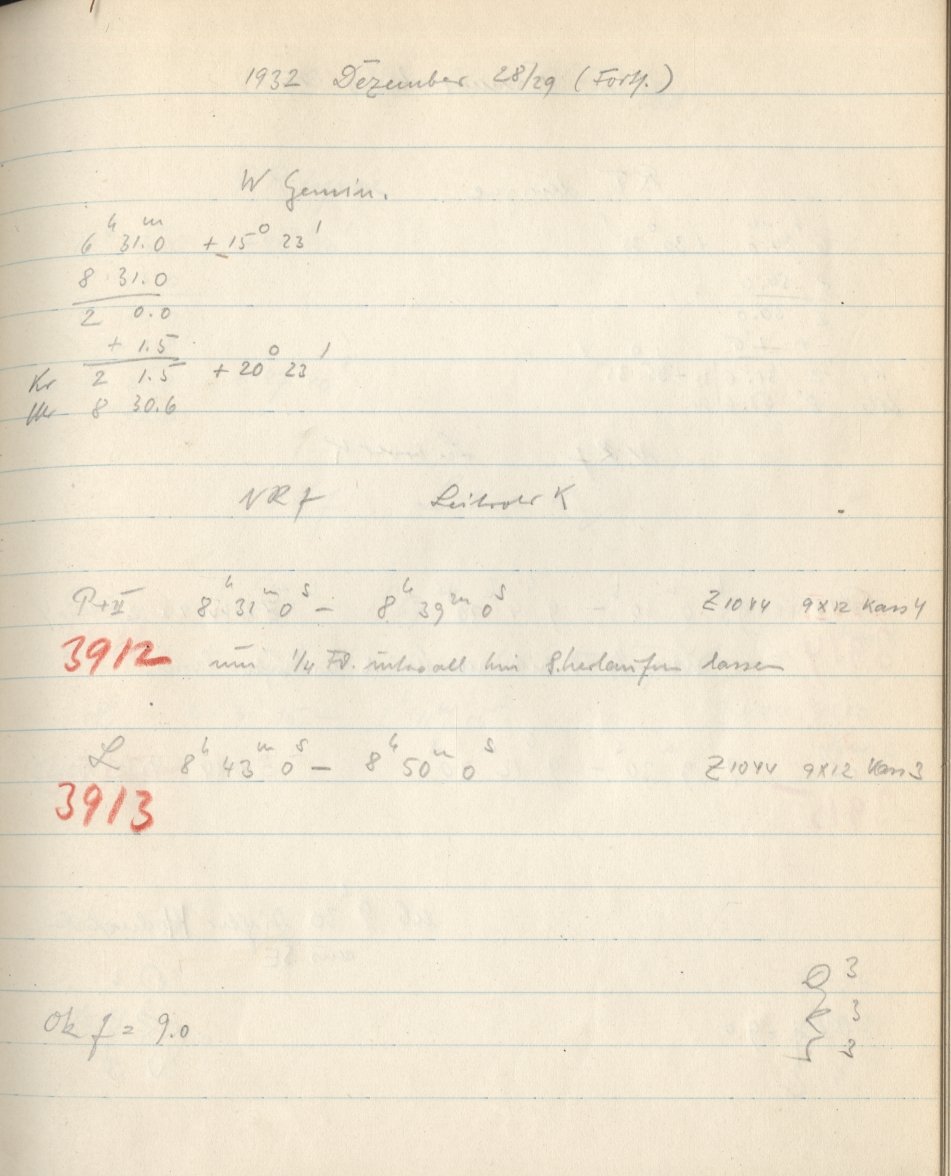 1932 Dezember 28/29 (Forts.)
W Gemin.
6h 31.0m +15° 23'
8 31.0
2 0.0
+ 1.5
Kr 2 1.5 +20° 23'
Uhr 8 30.6
NRf Leitrohr K
P+II 8h 31m 0s – 8h 39m 0s Z1044 9x12 Kass 4
3912 um 1/4 Fd. intervall hin & herlaufen lassen
L 8h 43m 0s – 8h 50m 0s Z1044 9x12 Kass 3
3913
Q 3
R 3
Ok f = 9.0
S 3